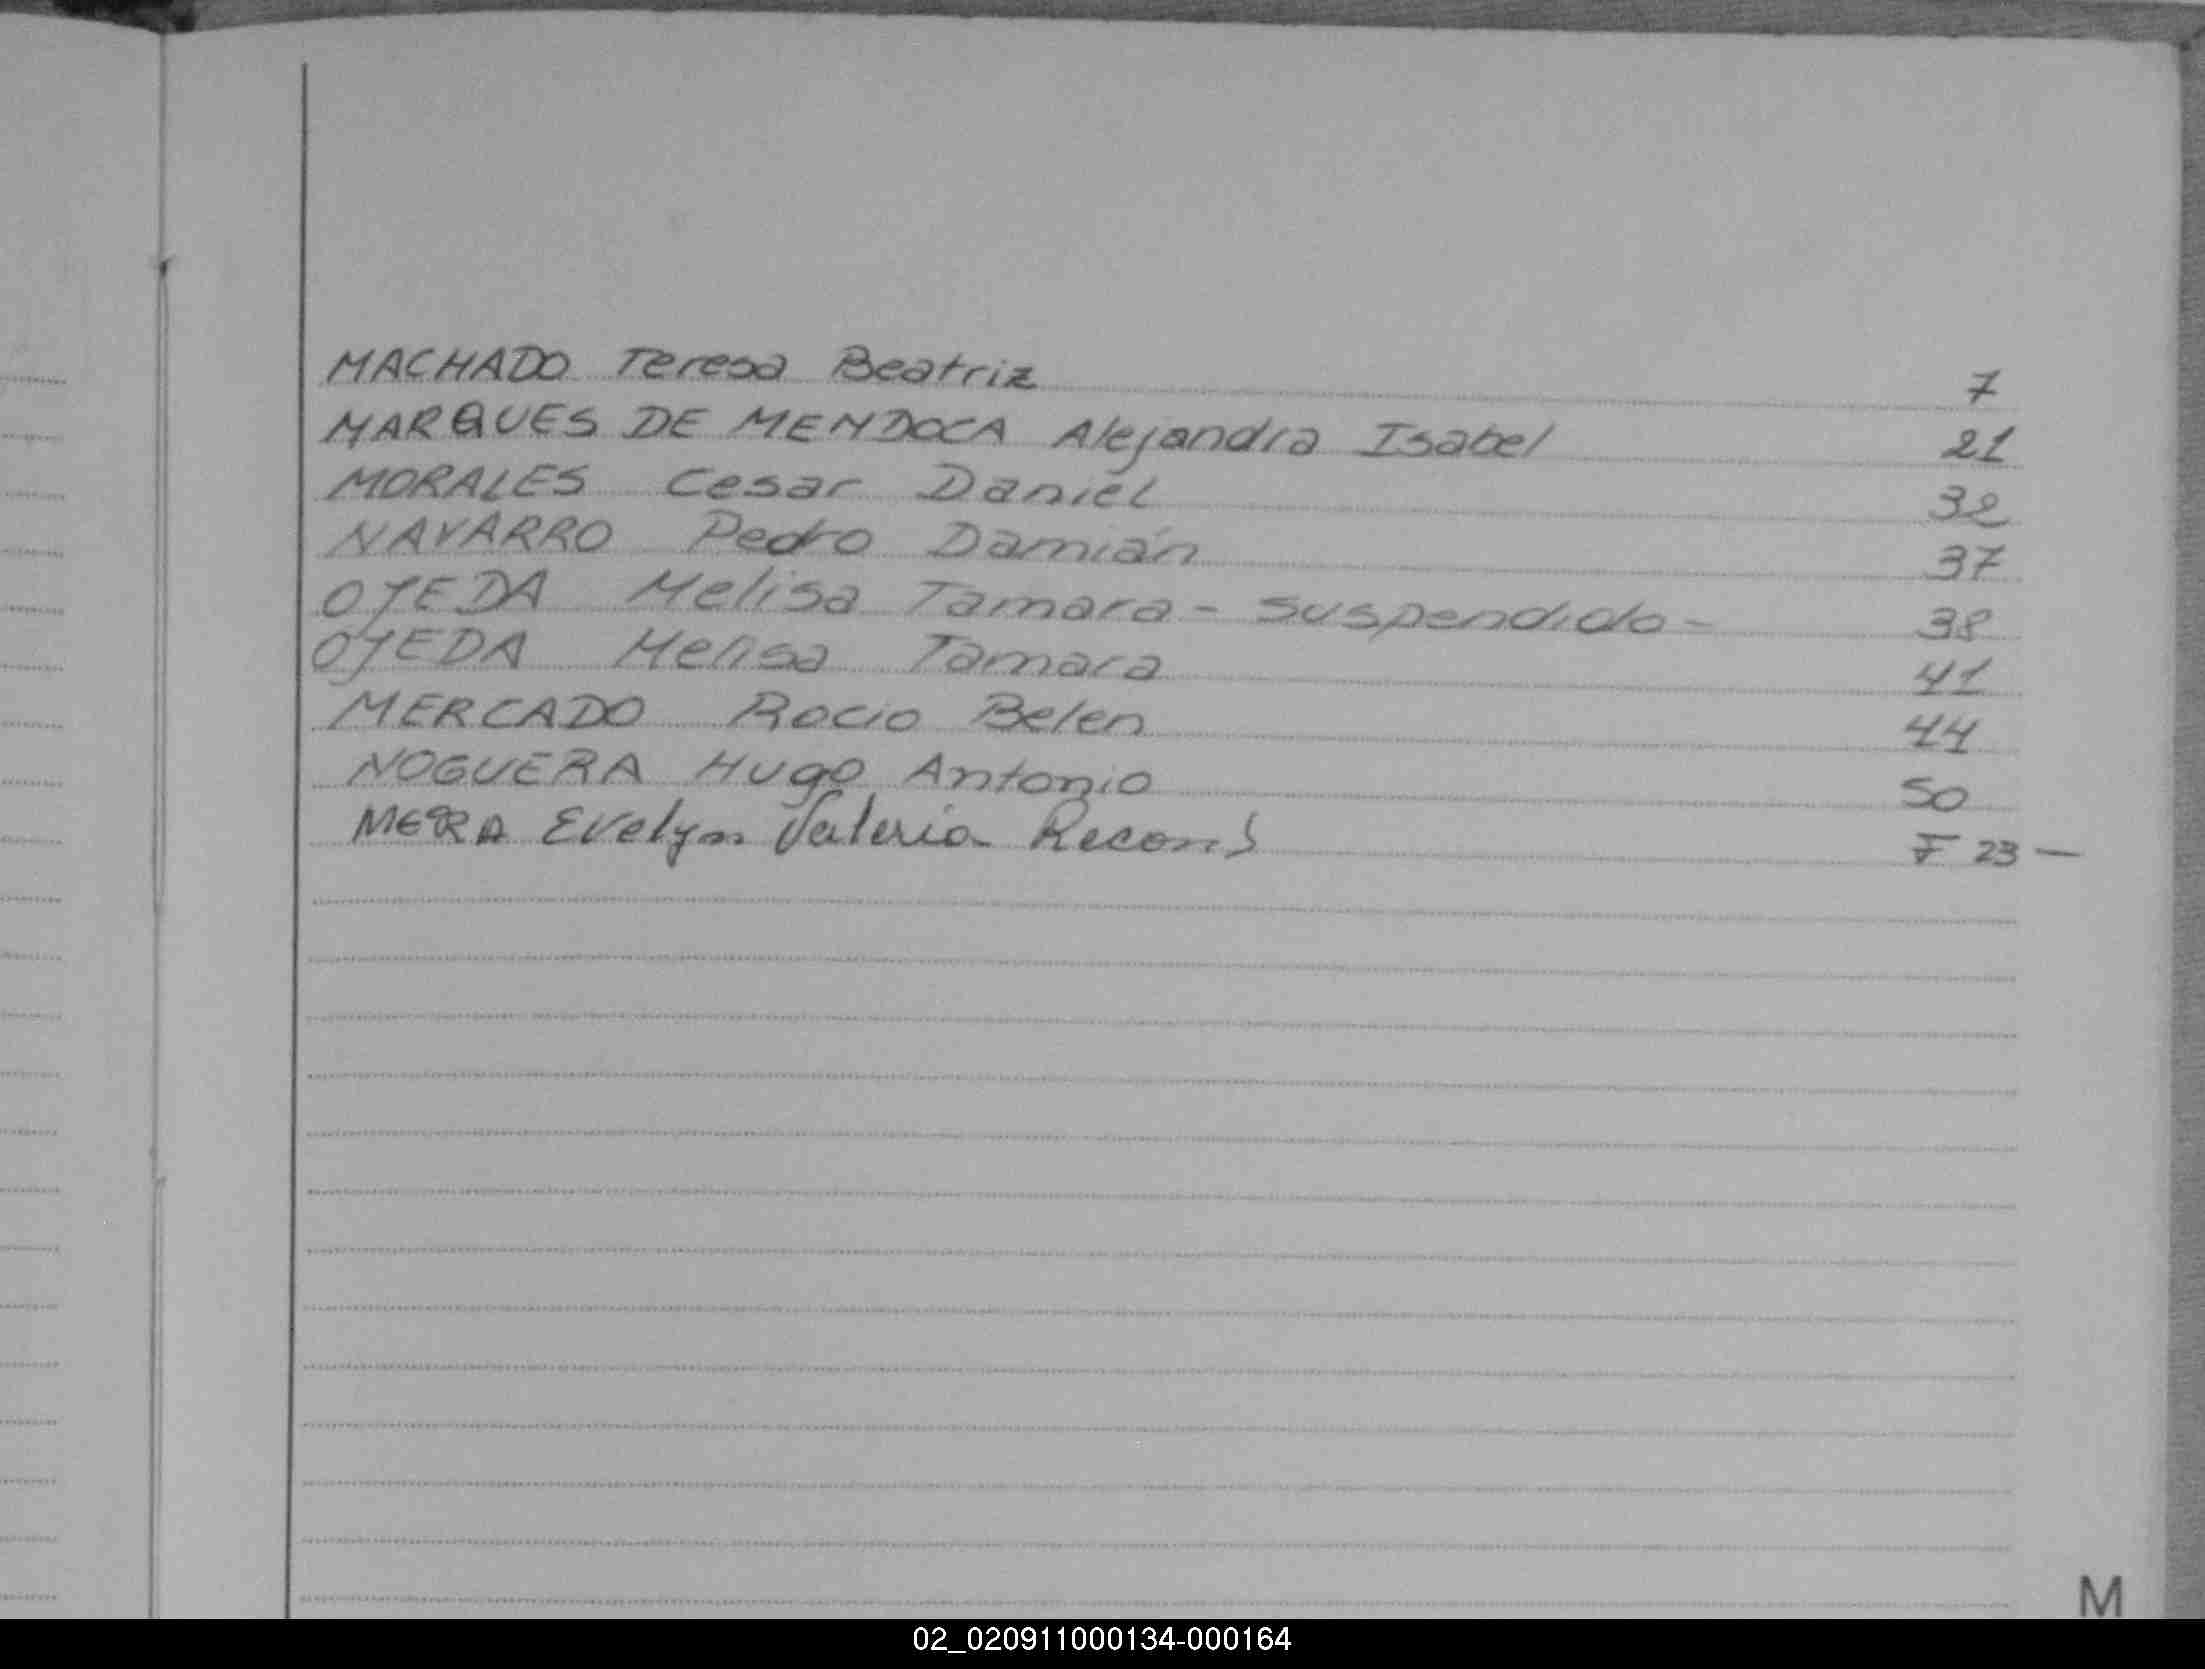 MACHADO Teresa Beatriz 7
MARQUES DE MENDOCA Alejandra Isabel 21
MORALES Cesar Daniel 32
NAVARRO Pedro Damián 37
OJEDA Melisa Tamara - Suspendido - 38
OJEDA Melisa Tamara 41
MERCADO Rocio Belen 44
NOGUERA Hugo Antonio 50
MERA Evelyn Valeria F 23 —
M
02_020911000134-000164